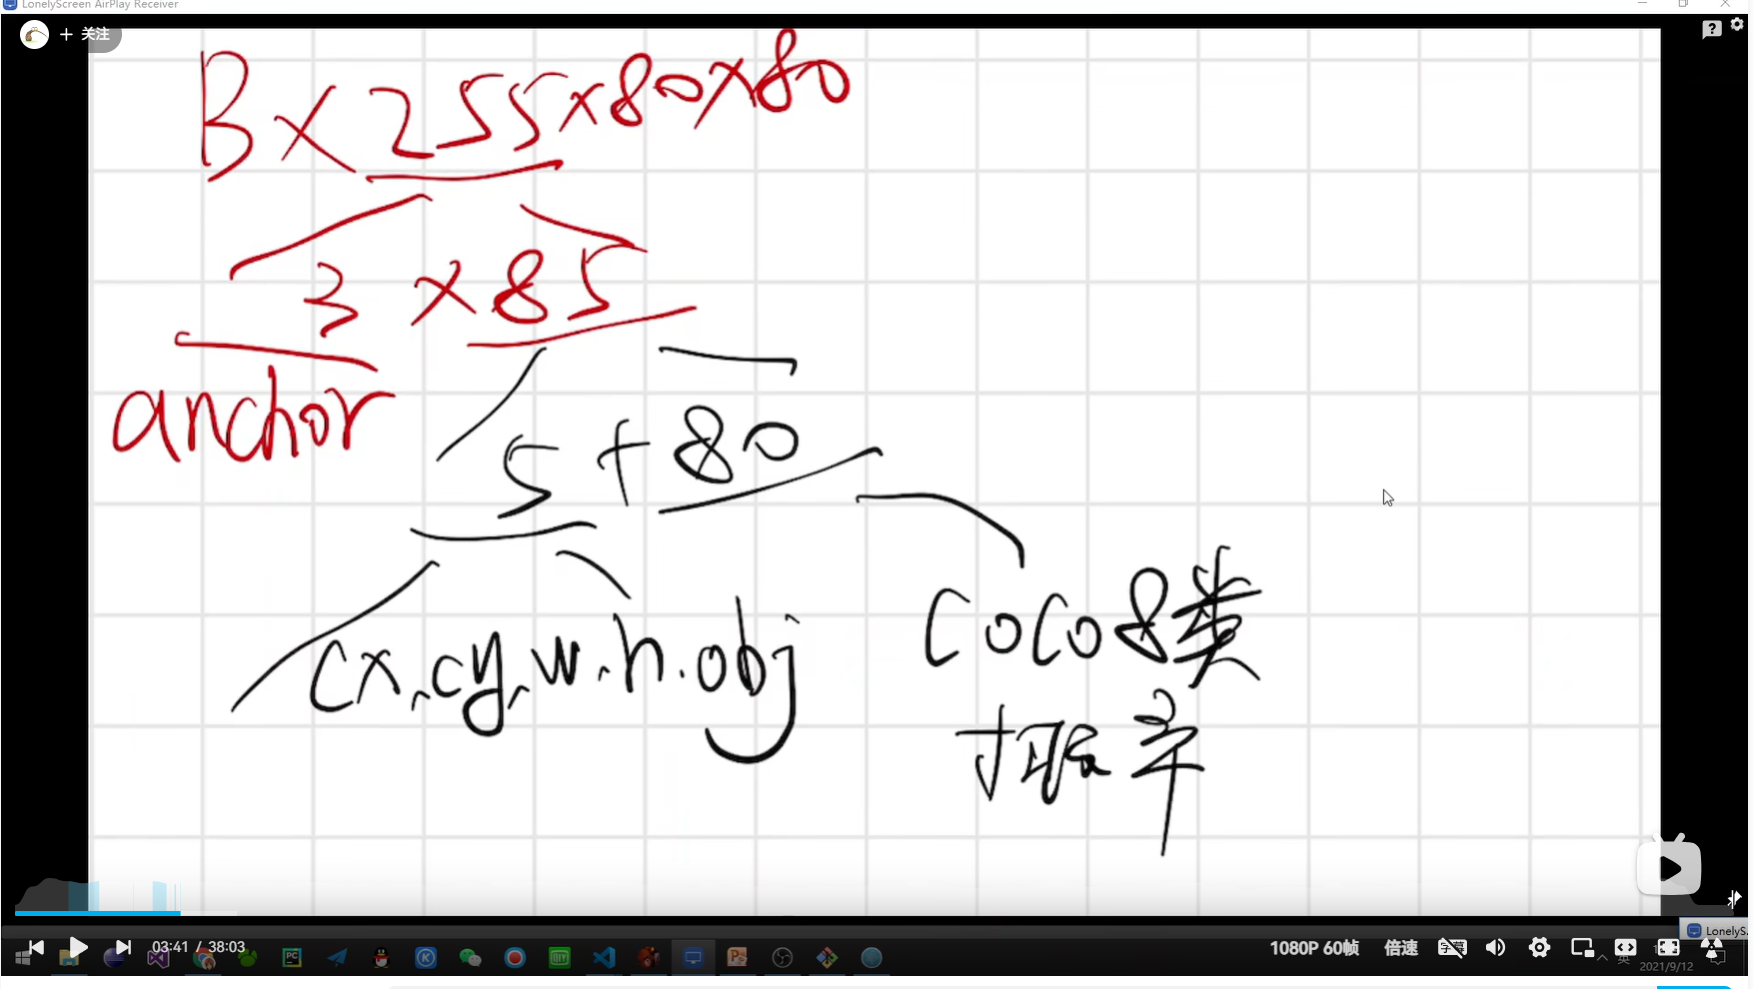 LonelyScreen AirPlay Receiver
+ 关注
B×255×80×80
3 × 85
anchor
5 + 80
cx,cy,w,h.obj
COCO 8类
概率
03:41 / 38:03
1080P 60帧 倍速 字幕
LonelyS.
英
2021/9/12